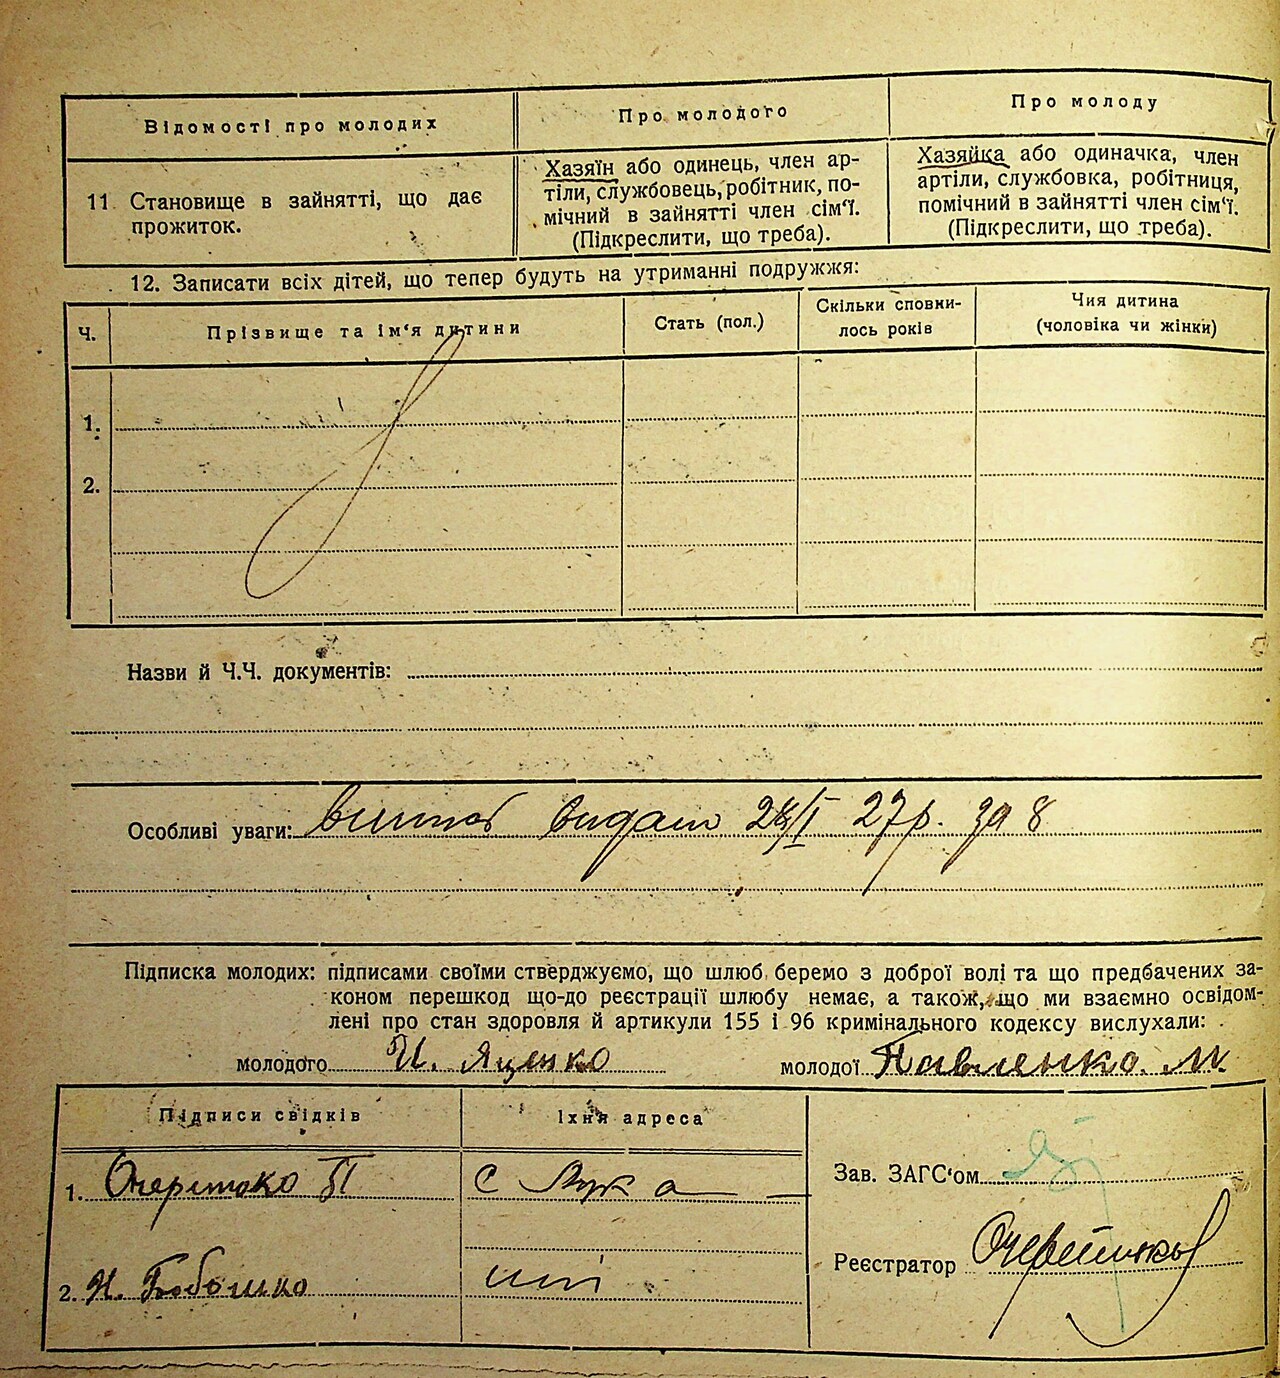 Відомості про молодих
Про молодого
Про молоду
11 Становище в зайнятті, що дає
прожиток.
Хазяїн або одинець, член ар-
тіли, службовець, робітник, по-
мічний в зайнятті член сім‘ї.
(Підкреслити, що треба).
Хазяйка або одиначка, член
артіли, службовка, робітниця,
помічний в зайнятті член сім‘ї.
(Підкреслити, що треба).
12. Записати всіх дітей, що тепер будуть на утриманні подружжя:
Ч.
Прізвище та ім‘я дитини
Стать (пол.)
Скільки сповни-
лось років
Чия дитина
(чоловіка чи жінки)
1.
2.
Назви й Ч.Ч. документів:
Особливі уваги: видано 28/I 27р. за 8
Підписка молодих: підписами своїми стверджуємо, що шлюб беремо з доброї волі та що предбачених за-
коном перешкод що-до реєстрації шлюбу немає, а також, що ми взаємно освідом-
лені про стан здоровля й артикули 155 і 96 кримінального кодексу вислухали:
молодого И. Яценко молодої Павленко. М.
Підписи свідків
Їхня адреса
1. Очеретько П
с Лука
2. И. Бобошко
Зав. ЗАГС‘ом
Реєстратор Очеретько